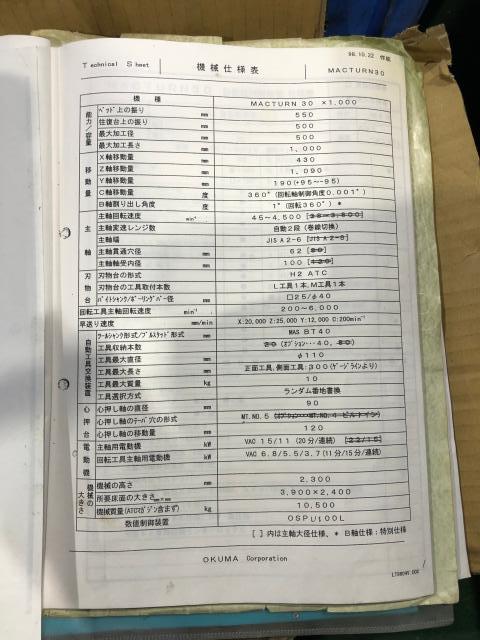 98.10.22 作成
Technical Sheet 機械仕様表 MACTURN30
機種 MACTURN 30 ×1,000
能力/容量 ベッド上の振り mm 550
往復台上の振り mm 500
最大加工径 mm 500
最大加工長さ mm 1,000
移動量 X軸移動量 mm 430
Z軸移動量 mm 1,090
Y軸移動量 mm 190(+95~-95)
C軸移動量 度 360°(回転軸制御角度0.001°)
B軸割り出し角度 度 1°(回転360°) *
主軸 主軸回転速度 min⁻¹ 45~4,500 [38~3,800]
主軸変速レンジ数 自動2段(巻線切換)
主軸端 JIS A2-6 [JIS A2-8]
主軸貫通穴径 mm 62 [80]
主軸軸受内径 mm 100 [120]
刃物台 刃物台の形式 H2 ATC
刃物台の工具取付本数 L工具1本,M工具1本
バイトシャンク/ボーリングバー径 mm □25/φ40
回転工具主軸回転速度 min⁻¹ 200~6,000
早送り速度 mm/min X:20,000 Z:25,000 Y:12,000 C:200min⁻¹
自動工具交換装置 ツールシャンク形式/プルスタッド形式 mm MAS BT40
工具収納本数 20 (オプション・・・40, 80)
工具最大直径 mm φ110
工具最大長さ mm 正面工具,側面工具:300(ゲージラインより)
工具最大質量 kg 10
工具選択方式 ランダム番地書換
心押台 心押し軸の直径 mm 90
心押し軸のテーパ穴の形式 MT.NO.5 (オプション・・・MT.NO.4 ビルトイン)
心押し軸の移動量 mm 120
電動機 主軸用電動機 kW VAC 15/11 (20分/連続) [22/15]
回転工具主軸用電動機 kW VAC 6.8/5.5/3.7(11分/15分/連続)
機械の大きさ 機械の高さ mm 2,300
所要床面の大きさ mm×mm 3,900×2,400
機械質量(ATCマガジン含まず) kg 10,500
数値制御装置 OSPU100L
[ ]内は主軸大径仕様、* B軸仕様:特別仕様
OKUMA Corporation